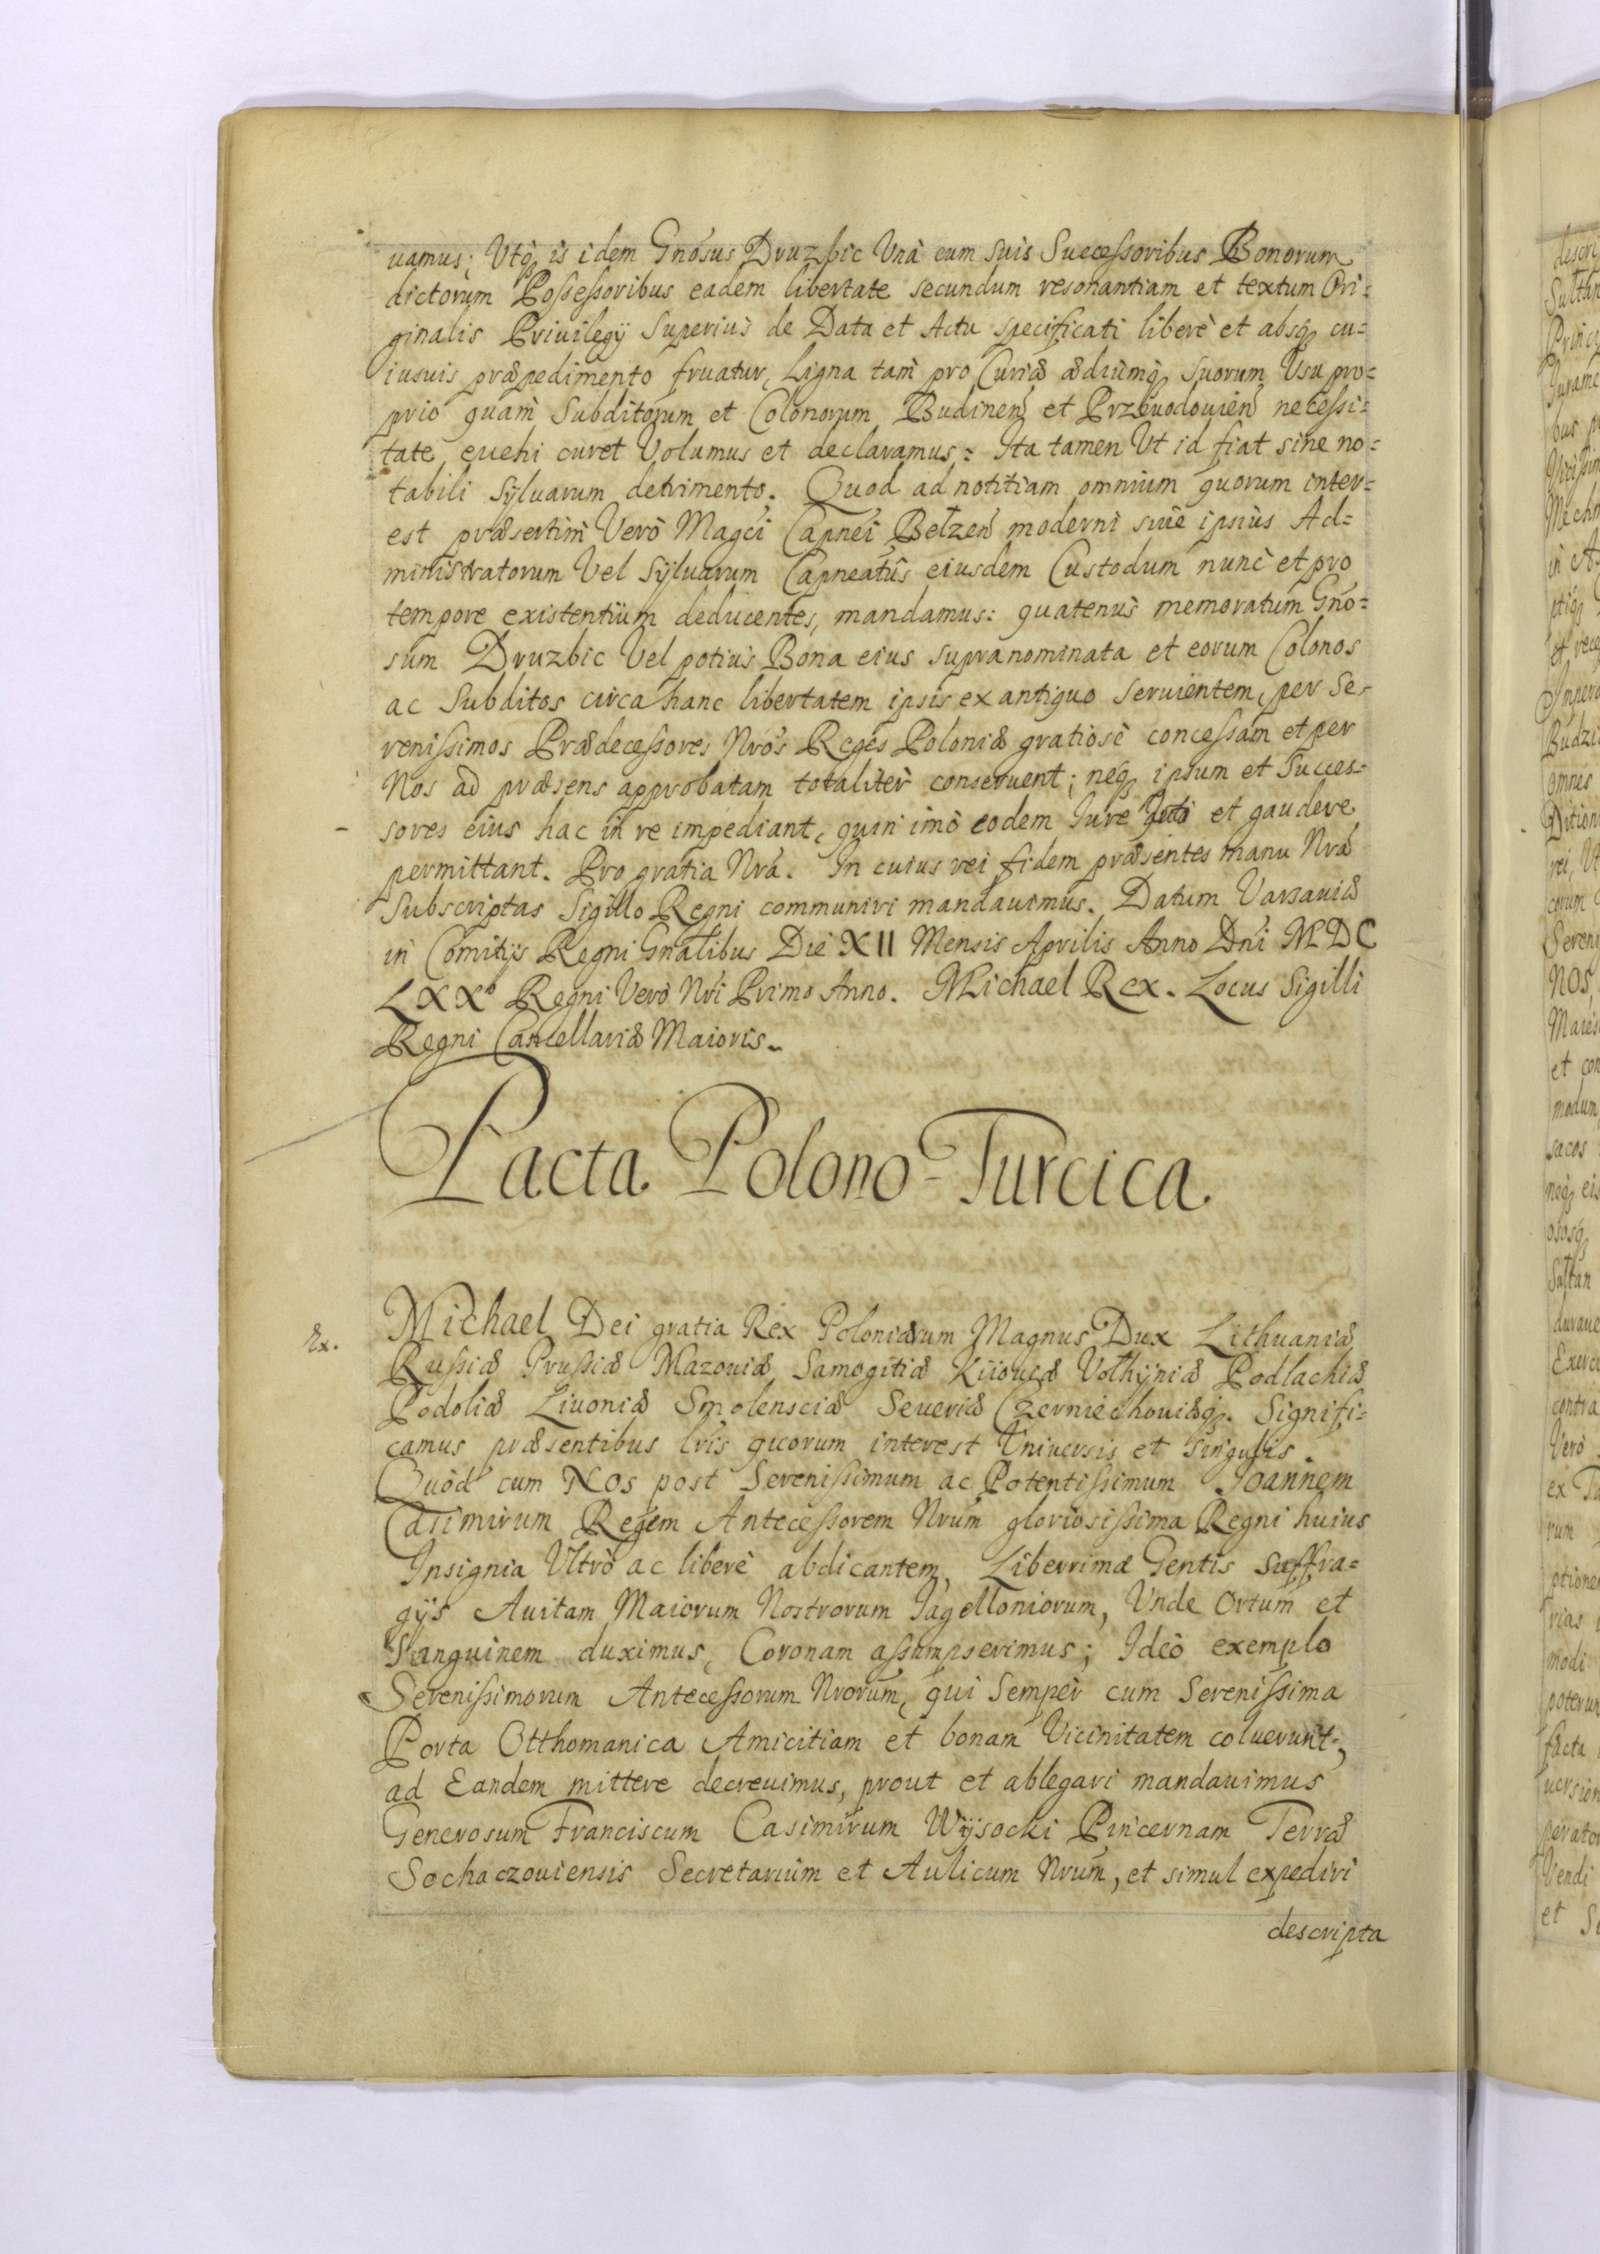 uamus; Vtq̃ is idem Gnõsus Druzbic Vnà cum suis Successoribus Bonorum
dictorum Possessoribus eadem libertate secundum resonantiam et textum Ori=
ginalis Priuilegÿ Superiùs de Data et Actu specificati liberè et absq̃ cu=
iusuis præpedimento fruatur, Ligna tam̀ pro Curiæ ædiumq̃ suorum Vsu pro=
prio quam̀ Subditorum et Colonorum Budineñ et Przeuodouieñ necessi=
tate, euehi curet Volumus et declaramus: Ita tamen Vt id fiat sine no=
tabili sÿluarum detrimento. Quod ad notitiam omnium quorum inter=
est præsertim̀ Verò Magc̃i Capnei Bełzeñ moderni siuè ipsius Ad=
ministratorum Vel Sÿluarum Capneatûs eiusdem Custodum nunc et pro
tempore existentium deducentes, mandamus: quatenùs memoratum Gnõ=
sum Druzbic Vel potiùs Bona eius supranominata et eorum Colonos
ac Subditos circa hanc libertatem ipsis ex antiquo seruientem, per Se=
renissimos Prædecessores Nrõs Reges Poloniæ gratiosè concessam et per
Nos ad præsens approbatam totalitèr conseruent; neq̃ ipsum et Succes=
sores eius hac in re impediant, quin imò eodem Iure uti et gaudere
permittant. Pro gratia Nrã. In cuius rei fidem præsentes manu Nrã
Subscriptas Sigillo Regni communiri mandauimus. Datum Varsauiæ
in Comitÿs Regni Gnãlibus Die XII Mensis Aprilis Anno Dnĩ MDC
LXXo Regni Verò Nrĩ Primo Anno. Michael Rex. Locus Sigilli
Regni Cancellariæ Maioris.
Pacta Polono-Turcica.
Ex.
Michael Dei gratia Rex Poloniarum Magnus Dux Lithuaniæ
Russiæ Prussiæ Mazouiæ Samogitiæ Kiiouiæ Volhÿniæ Podlachiæ
Podoliæ Liuoniæ Smolensciæ Seueriæ Czerniechouiæq̃. Signifi=
camus præsentibus lrĩs quorum interest Vniuersis et singulis.
Quòd cum NOS post Serenissimum ac Potentissimum Joannem
Casimirum Regem Antecessorem Nrũm gloriosissima Regni huius
Insignia Vltrò ac liberè abdicantem, Liberrimæ Gentis Suffra=
gÿs Auitam Maiorum Nostrorum Jagelloniorum, Vnde Ortum et
Sanguinem duximus, Coronam assumpserimus; Ideò exemplo
Serenissimorum Antecessorum Nrorũm, qui Sempèr cum Serenissima
Porta Otthomanica Amicitiam et bonam Vicinitatem coluerunt,
ad Eandem mittere decreuimus, prout et ablegari mandauimus
Generosum Franciscum Casimirum Wÿsocki Pincernam Terræ
Sochaczouiensis Secretarium et Aulicum Nrũm, et simul expediri
descripta